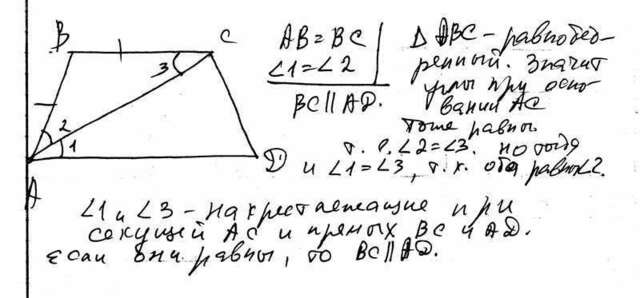 B
C
3
2
1
A
D
AB = BC
∠1 = ∠2
BC || AD.
Δ ABC - равнобед-
ренный. Значит
углы при осно-
вании AC
тоже равны.
т. е. ∠2 = ∠3. но тогда
и ∠1 = ∠3, т. к. оба равны ∠2.
∠1 и ∠3 - накрест лежащие при
секущей AC и прямых BC и AD.
Если они равны, то BC || AD.